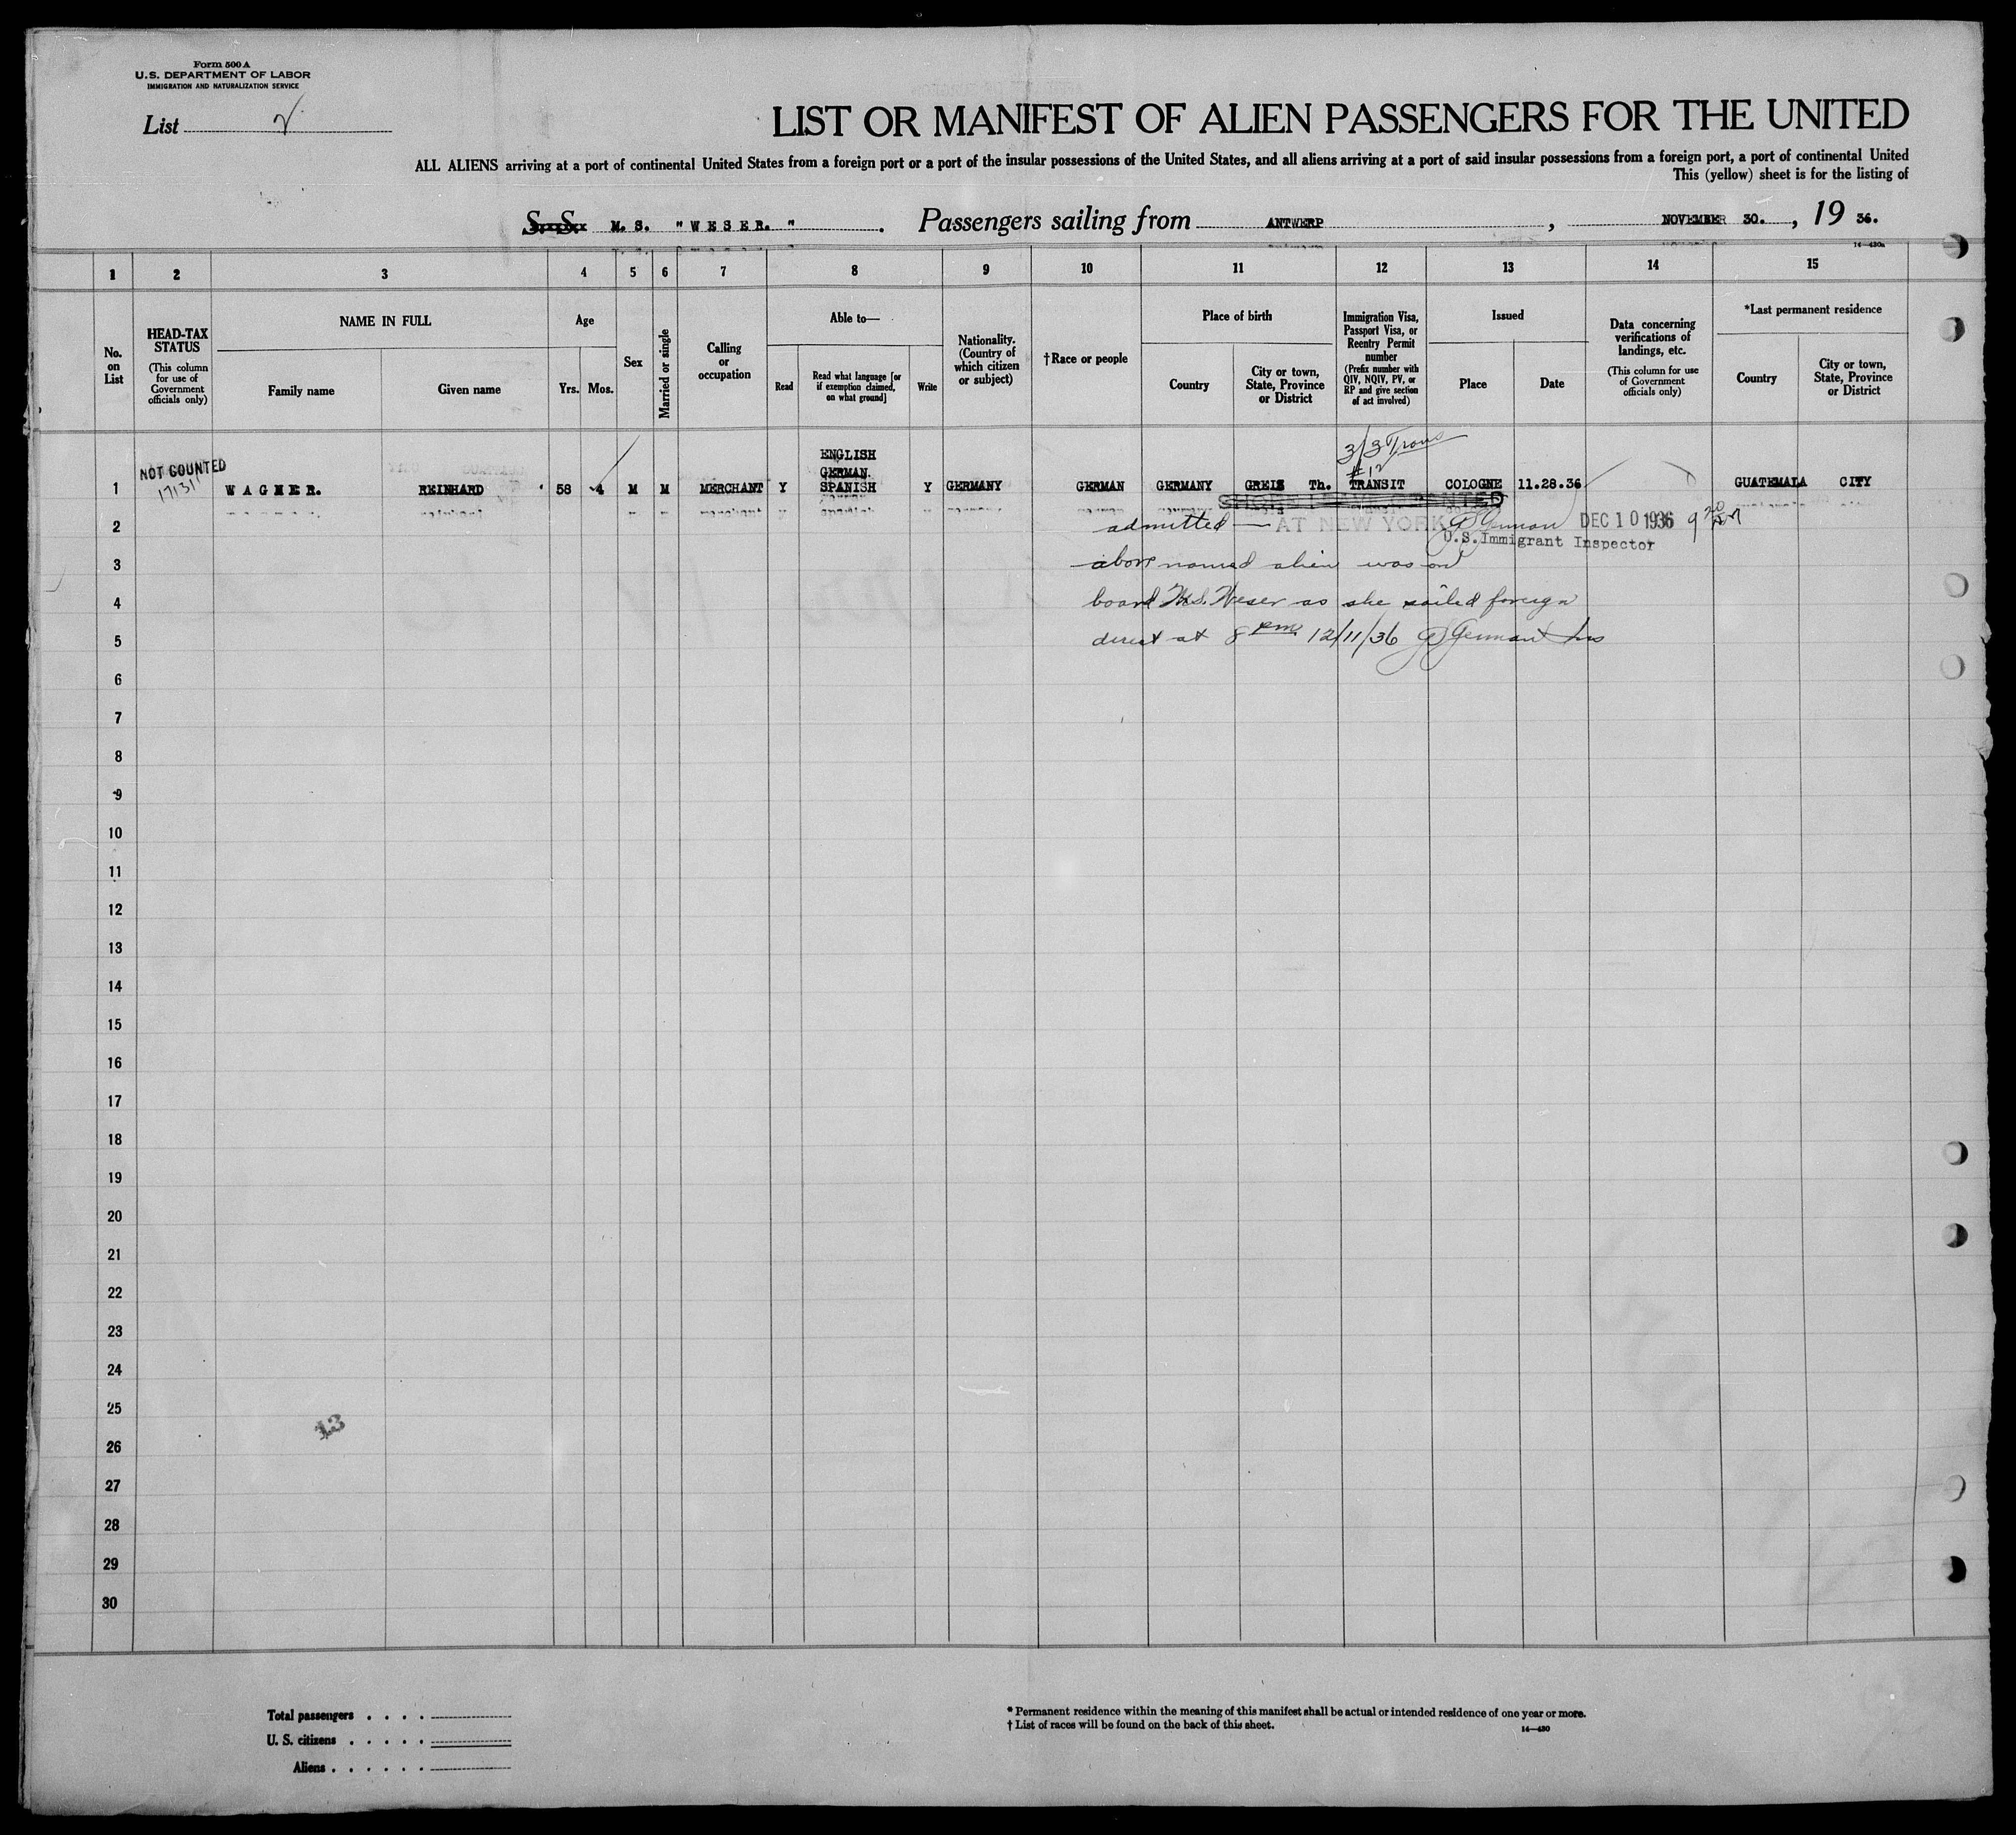 Form 500 A
U.S. DEPARTMENT OF LABOR
IMMIGRATION AND NATURALIZATION SERVICE
List
LIST OR MANIFEST OF ALIEN PASSENGERS FOR THE UNITED
ALL ALIENS arriving at a port of continental United States from a foreign port or a port of the insular possessions of the United States, and all aliens arriving at a port of said insular possessions from a foreign port, a port of continental United
This (yellow) sheet is for the listing of
S. S. M. S. "WESER." . Passengers sailing from ANTWERP , NOVEMBER 30. , 19 36.
1 2 3 4 5 6 7 8 9 10 11 12 13 14 15
No. on List
HEAD-TAX STATUS
(This column for use of Government officials only)
NAME IN FULL
Family name Given name
Age
Yrs. Mos.
Sex
Married or single
Calling or occupation
Able to—
Read
Read what language [or if exemption claimed, on what ground]
Write
Nationality. (Country of which citizen or subject)
†Race or people
Place of birth
Country
City or town, State, Province or District
Immigration Visa, Passport Visa, or Reentry Permit number
(Prefix number with QIV, NQIV, PV, or RP and give section of act involved)
Issued
Place Date
Data concerning verifications of landings, etc.
(This column for use of Government officials only)
*Last permanent residence
Country
City or town, State, Province or District
3/3 Trans
#12
ENGLISH
GERMAN.
NOT COUNTED
17131
1 WAGNER. REINHARD 58 4 M M MERCHANT Y SPANISH Y GERMANY GERMAN GERMANY GREIZ Th. TRANSIT COLOGNE 11.28.36 GUATEMALA CITY
SHORE LEAVE GRANTED
2 admitted — AT NEW YORK DEC 10 1936 9
U.S. Immigrant Inspector
3 above named alien was on
4 board M.S. Weser as she sailed foreign
5 direct at 8 pm 12/11/36 German Ins
6
7
8
9
10
11
12
13
14
15
16
17
18
19
20
21
22
23
24
25
13
26
27
28
29
30
Total passengers
U. S. citizens
Aliens
* Permanent residence within the meaning of this manifest shall be actual or intended residence of one year or more.
† List of races will be found on the back of this sheet.
14—430